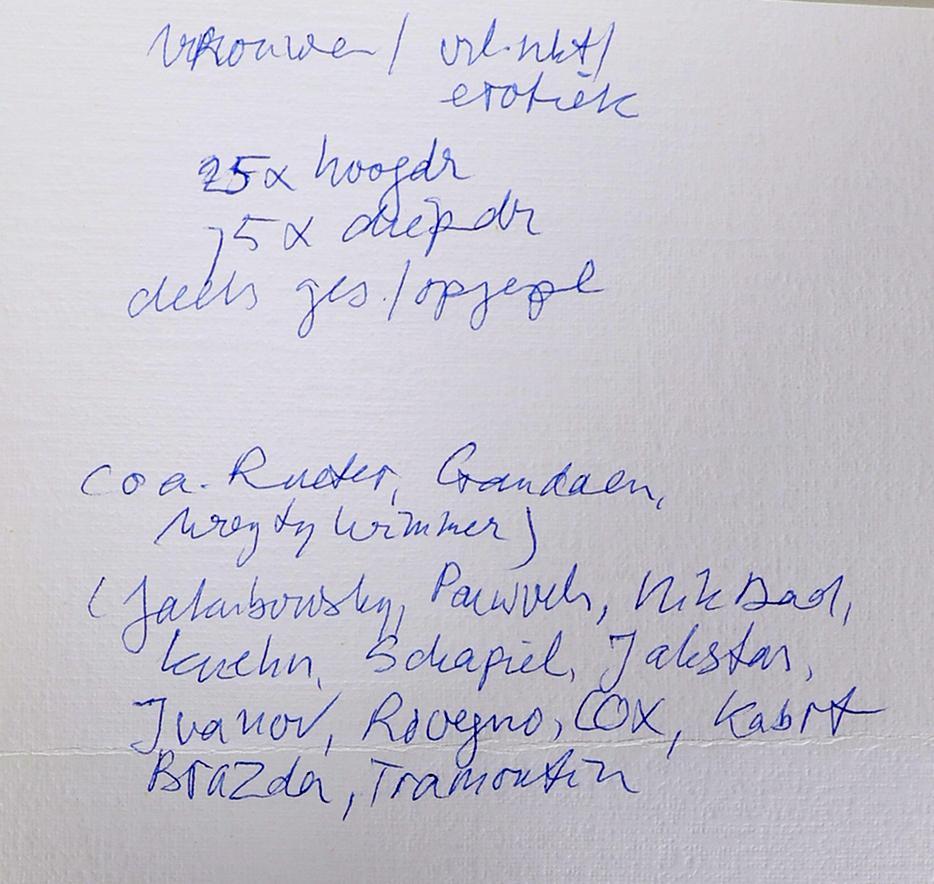 vrouwen / vrl. nkt/
erotiek
25x hoogdr
75x diepdr
deels ges./opgepl
(o a. Rueter, Grandaen,
Wimmer)
(Jakubowsky, Pauwels, Nik Dad,
Kuehn, Schapiel, Jakstas,
Ivanov, Rovegno, COX, Kabrt
BRAZda, Tramontin